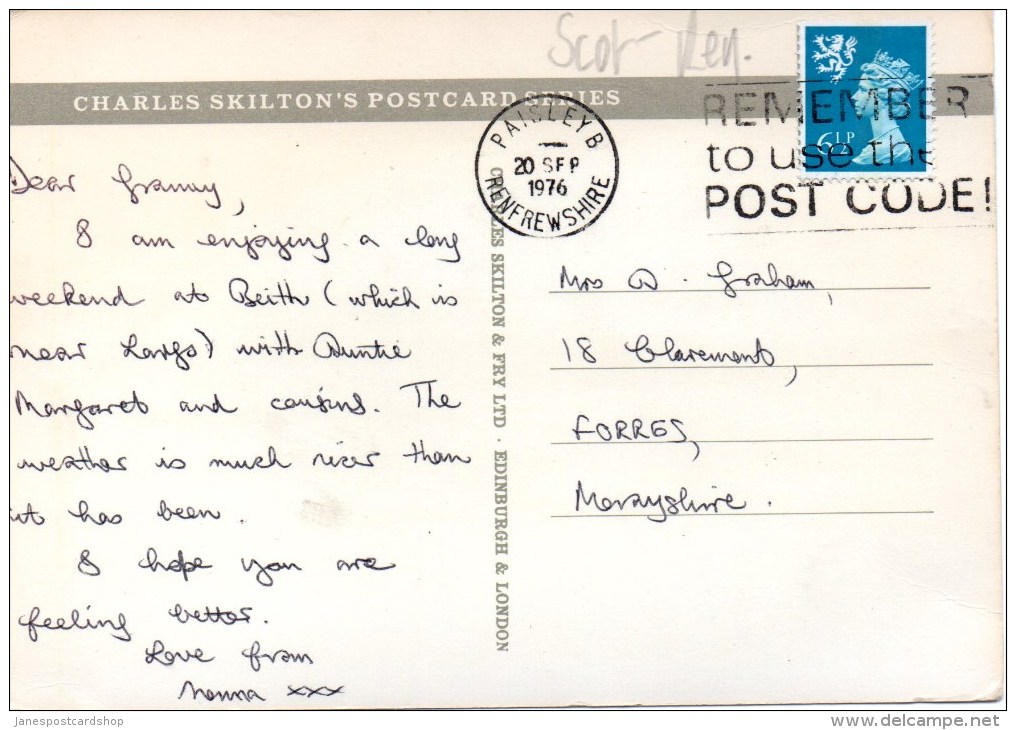 Scot Ren.
CHARLES SKILTON'S POSTCARD SERIES
PAISLEY B
20 SEP
1976
RENFREWSHIRE
6½P
REMEMBER
to use the
POST CODE!
Dear Granny,
I am enjoying a long
weekend at Beith (which is
near Largs) with Auntie
Margaret and cousins. The
weather is much nicer than
it has been.
I hope you are
feeling better.
Love from
xxx
CHARLES SKILTON & FRY LTD · EDINBURGH & LONDON
Mrs D. Graham,
18 Claremont,
FORRES,
Morayshire.
Janespostcardshop
www.delcampe.net